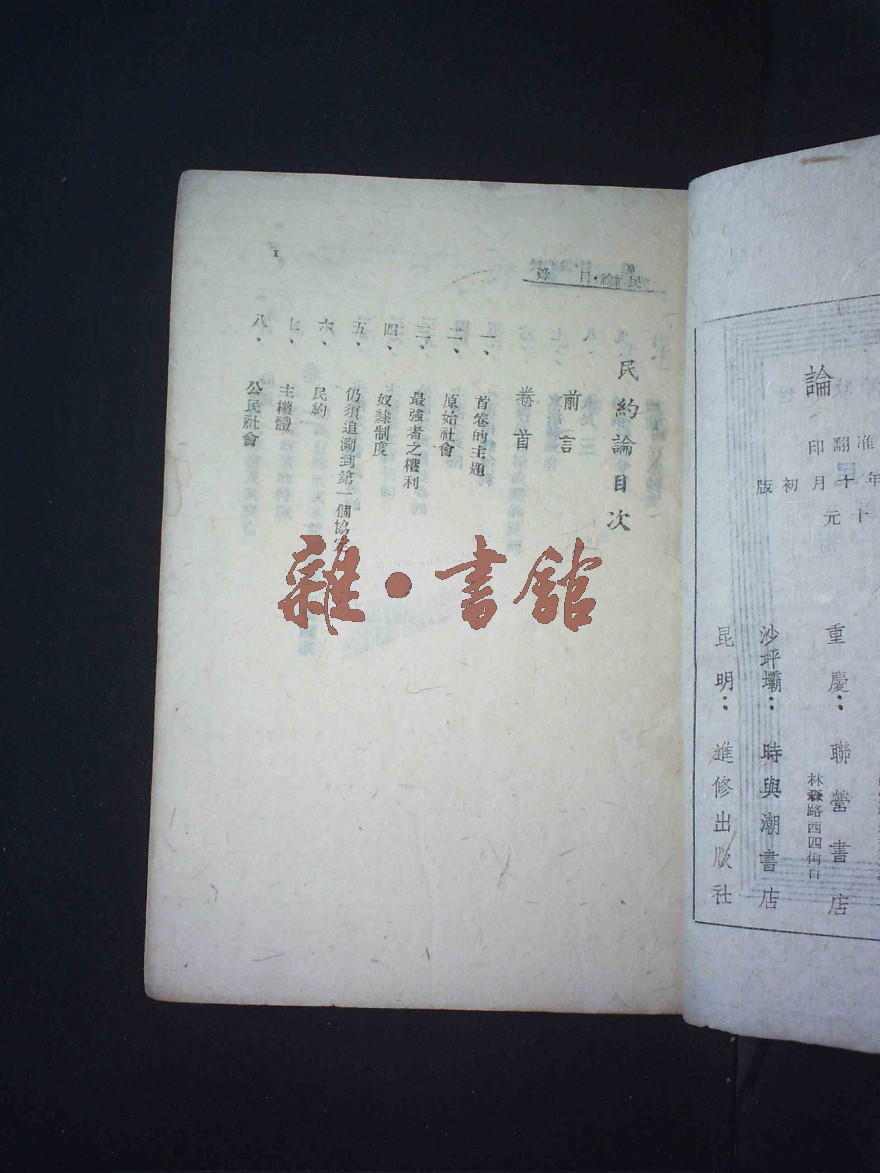 論
准翻印
年十月初版
十元
重慶：聯營書店
林森路西四街口
沙坪壩：時與潮書店
昆明：進修出版社
民約論·目錄
1
民約論目次
前言
卷首
一、首卷的主題
二、原始社會
三、最強者之權利
四、奴隸制度
五、仍須追溯到第一個協定
六、民約
七、主權體
八、公民社會
雜·書館